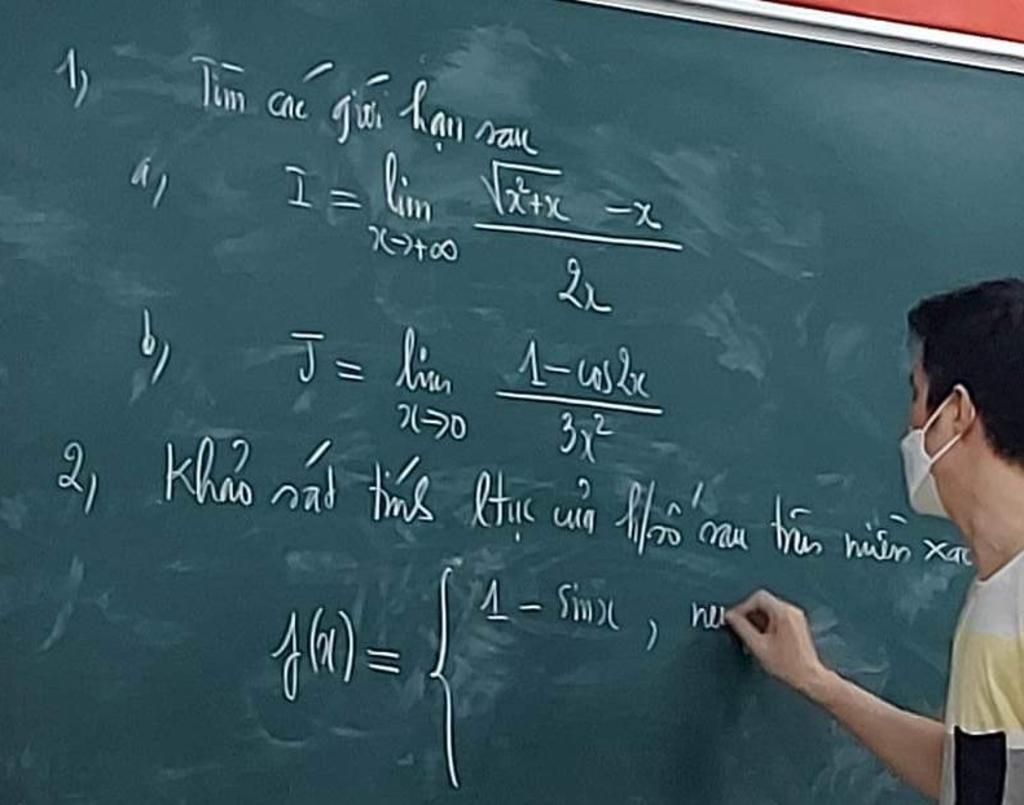 1, Tìm các giới hạn sau
a, I = lim x→+∞ (√(x²+x) - x) / 2x
b, J = lim x→0 (1-cos2x) / 3x²
2, Khảo sát tính ltục của h/số sau trên miền
f(x) = { 1 - sinx ,